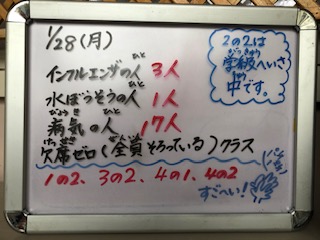 1/28(月)
インフルエンザの人 3人
水ぼうそうの人 1人
病気の人 17人
欠席ゼロ(全員そろっている)クラス
1の2、3の2、4の1、4の2
2の2は
学級へいさ
中です。
すごーい!